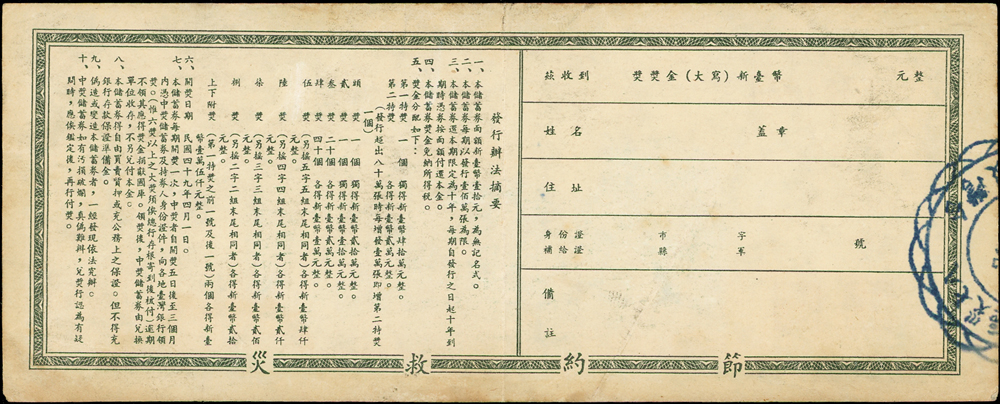 茲收到 獎獎金(大寫)新臺幣 元整
姓名 蓋章
住址
身份證 市 字 號
補給證 縣 軍
備註
發行辦法摘要
一、本儲蓄券面額新臺幣壹拾元,為無記名式。
二、本儲蓄券每期以發行壹佰萬張為限。
三、本儲蓄券還本期限定為十年,每期自發行之日起十年到
期時憑券按面額付還本金。
四、本儲蓄券獎金免納所得稅。
五、獎金分配如下:
第一特獎 一個 獨得新臺幣肆拾萬元整。
第二特獎 一個 獨得新臺幣貳拾萬元整。
(發行超出八十萬張時每增發壹萬張即增第二特獎
一個)
頭獎 一個 獨得新臺幣貳拾萬元整。
貳獎 一個 獨得新臺幣壹拾萬元整。
叁獎 二十個 各得新臺幣貳萬元整。
肆獎 四十個 各得新臺幣壹萬元整。
伍獎 (另搖五字五組末尾相同者)各得新臺幣肆仟
元整。
陸獎 (另搖四字四組末尾相同者)各得新臺幣貳仟
元整。
柒獎 (另搖三字三組末尾相同者)各得新臺幣貳佰
元整。
捌獎 (另搖二字二組末尾相同者)各得新臺幣貳拾
元整。
上下附獎 (第一特獎之前一號及後一號)兩個各得新臺
幣壹萬伍仟元整。
六、開獎日期 民國四十九年四月一日。
七、本儲蓄券每期開獎一次,中獎者自開獎五日後至三個月
內憑中獎儲蓄券及持券人身份證件,向各地臺灣銀行領
獎。(惟六獎以上之大獎須俟總行存根寄到後核付)逾期
不領其應得獎金捐獻國庫。領獎後,中獎儲蓄券由兌換
單位收存,不另兌付本金。
八、本儲蓄券得自由買賣質押或充公務上之保證。但不得充
銀行存款保證準備金。
九、偽造或變造本儲蓄券者,一經發現依法究辦。
十、中獎儲蓄券如有污損破爛,真偽難辨,兌獎行認為有疑
問時,應俟鑑定後,再行付獎。
節約救災